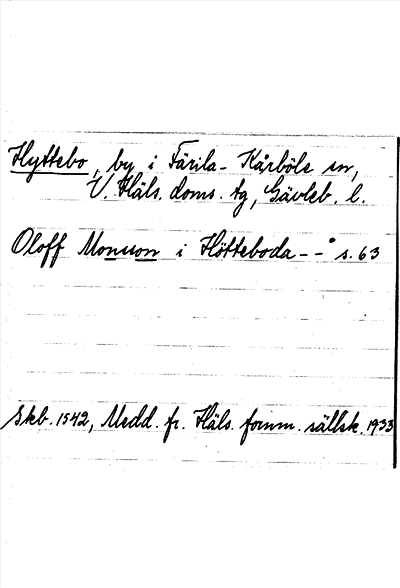 Hyttebo, by i Färila-Kårböle sn,
V. Häls. doms. tg, Gävleb. l.
Oloff Monsson i Hötteboda -- s. 63
Skb. 1542, Medd. fr. Häls. fornm. sällsk. 1933